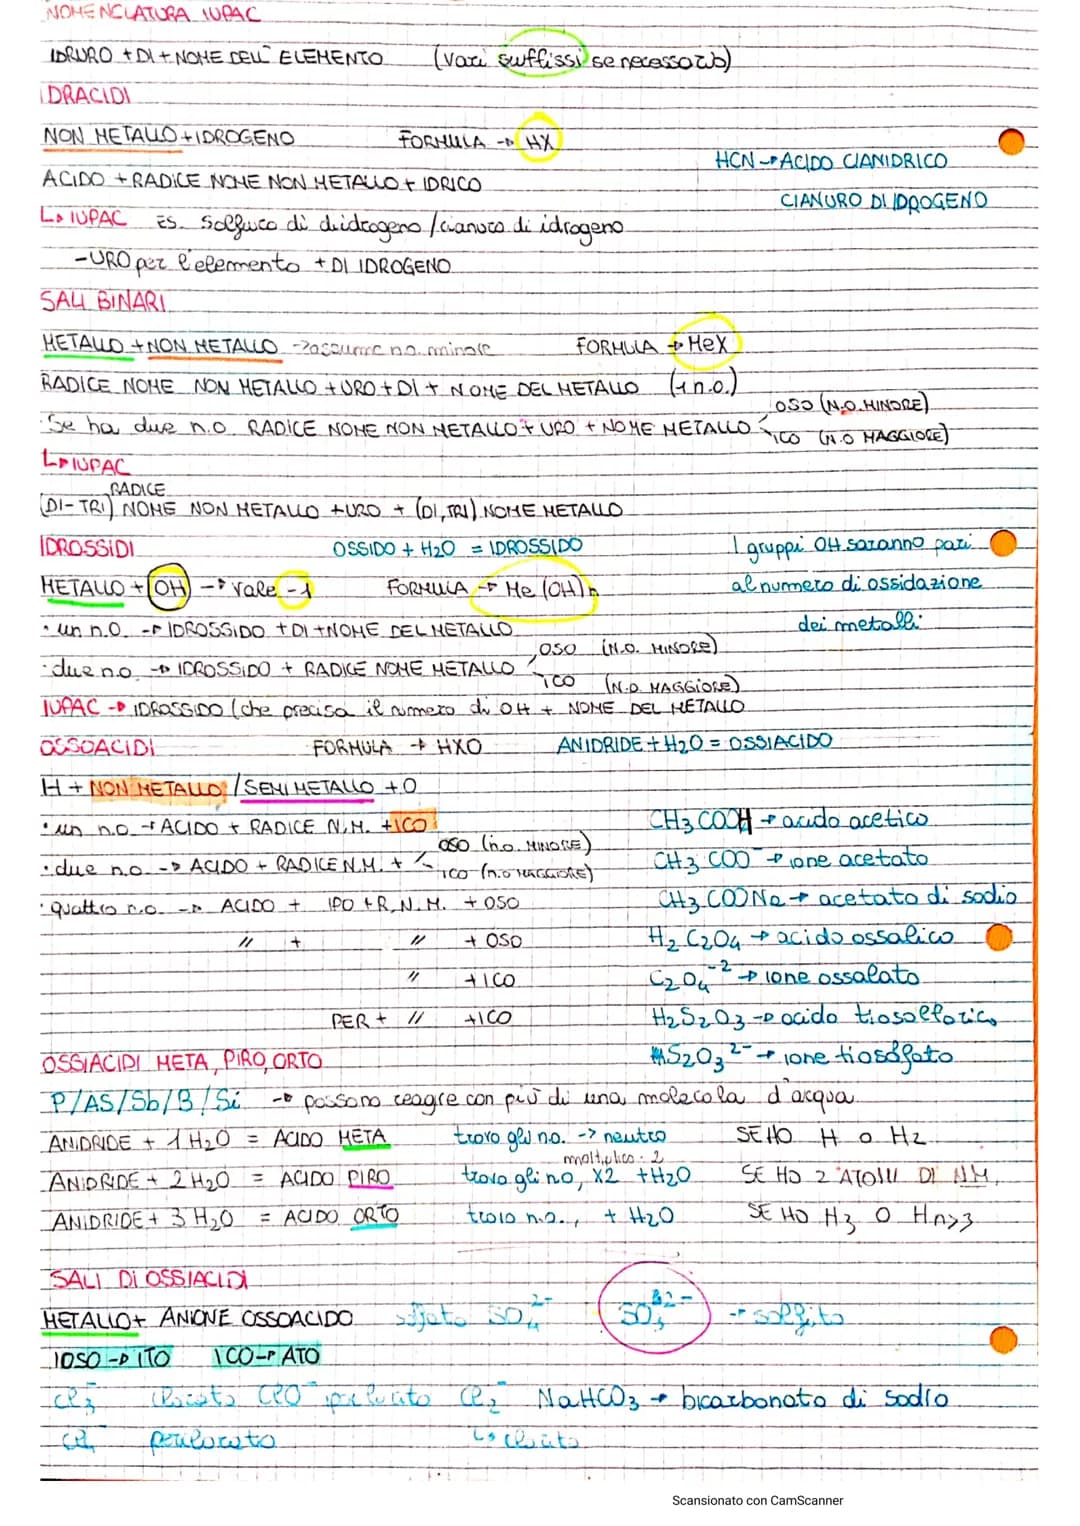 NOMENCLATURA IUPAC
IDRURO + DI + NOME DELL' ELEMENTO (vari suffissi se necessario)
IDRACIDI
NON METALLO + IDROGENO FORMULA → HX
HCN → ACIDO CIANIDRICO
ACIDO + RADICE NOME NON METALLO + IDRICO
CIANURO DI IDROGENO
↳ IUPAC ES. solfuro di diidrogeno / cianuro di idrogeno
-URO per l'elemento + DI IDROGENO
SALI BINARI
METALLO + NON METALLO → assume n.o. minore FORMULA → MeX
RADICE NOME NON METALLO + URO + DI + NOME DEL METALLO (1 n.o.)
OSO (N.O. MINORE)
Se ha due n.o. RADICE NOME NON METALLO + URO + NOME METALLO
ICO (N.O MAGGIORE)
↳ IUPAC
RADICE
(DI-TRI) NOME NON METALLO + URO + (DI, TRI) NOME METALLO
IDROSSIDI OSSIDO + H2O = IDROSSIDO I gruppi OH saranno pari
METALLO + OH → vale -1 FORMULA → Me(OH)n al numero di ossidazione
• un n.o. → IDROSSIDO + DI + NOME DEL METALLO dei metalli
OSO (N.O. MINORE)
• due n.o → IDROSSIDO + RADICE NOME METALLO
ICO (N.O. MAGGIORE)
IUPAC → IDROSSIDO (che precisa il numero di OH + NOME DEL METALLO
OSSOACIDI FORMULA → HXO ANIDRIDE + H2O = OSSIACIDO
H + NON METALLO / SEMIMETALLO + O
• un n.o. → ACIDO + RADICE N.M. + ICO CH3COOH → acido acetico
OSO (n.o. MINORE)
• due n.o. → ACIDO + RADICE N.M. + CH3COO⁻ → ione acetato
ICO (n.o MAGGIORE)
• quattro n.o. → ACIDO + IPO + R.N.M. + OSO CH3COONa → acetato di sodio
" + " + OSO H2C2O4 → acido ossalico
" + ICO C2O4⁻² → ione ossalato
PER + " + ICO H2S2O3 → acido tiosolforico
OSSIACIDI META, PIRO, ORTO S2O3²⁻ → ione tiosolfato
P/AS/Sb/B/Si → possono reagire con più di una molecola d'acqua
ANIDRIDE + 1 H2O = ACIDO META trovo gli n.o. → neutro SE HO H o H2
moltiplico · 2
ANIDRIDE + 2 H2O = ACIDO PIRO trovo gli n.o, x2 + H2O SE HO 2 ATOMI DI N.M.
ANIDRIDE + 3 H2O = ACIDO ORTO trovo n.o., + H2O SE HO H3 O Hn>3
SALI DI OSSIACIDI
METALLO + ANIONE OSSOACIDO solfato SO4²⁻ SO3²⁻ → solfito
IOSO → ITO ICO → ATO
clorato ClO⁻ NaHCO3 → bicarbonato di sodio
perclorato ↳ clorito
Scansionato con CamScanner